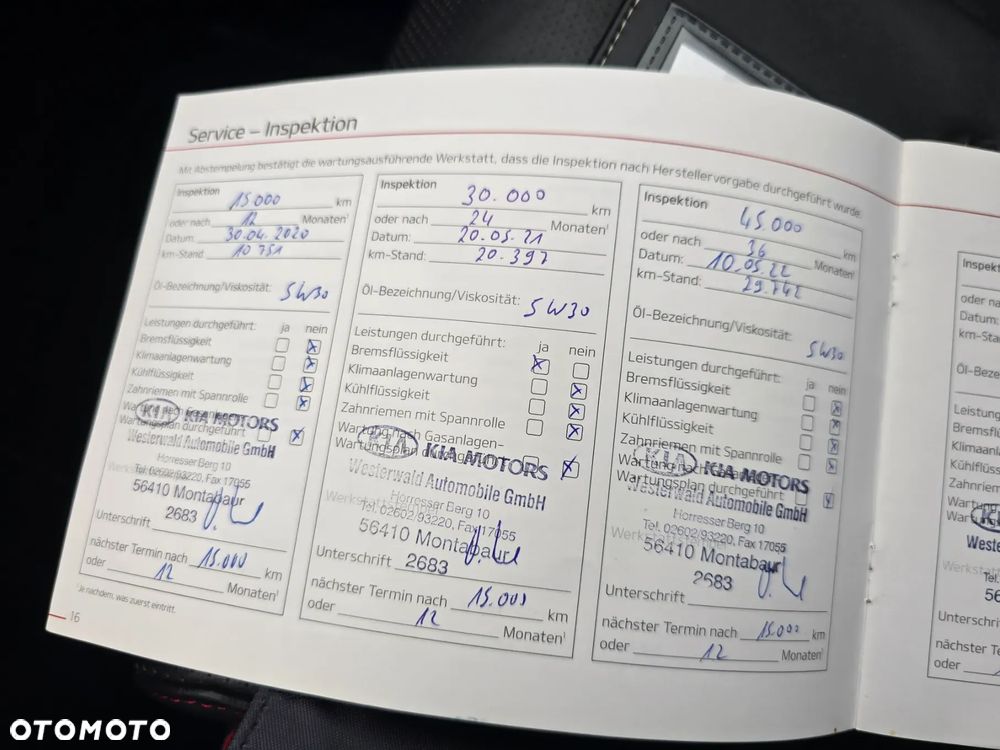 Service – Inspektion
Mit Abstempelung bestätigt die wartungsausführende Werkstatt, dass die Inspektion nach Herstellervorgabe durchgeführt wurde.
Inspektion 15000 km
oder nach 12 Monaten¹
Datum: 30.04.2020
km-Stand: 10 751
Öl-Bezeichnung/Viskosität: 5W30
Leistungen durchgeführt: ja nein
Bremsflüssigkeit
Klimaanlagenwartung
Kühlflüssigkeit
Zahnriemen mit Spannrolle
Wartung nach Gasanlagen-
Wartungsplan durchgeführt
KIA KIA MOTORS
Westerwald Automobile GmbH
Horresser Berg 10
Tel. 02602/93220, Fax 17055
56410 Montabaur
2683
Unterschrift
nächster Termin nach 15.000 km
oder 12 Monaten¹
¹Je nachdem, was zuerst eintritt.
16
Inspektion 30.000 km
oder nach 24 Monaten¹
Datum: 20.05.21
km-Stand: 20.397
Öl-Bezeichnung/Viskosität: 5W30
Leistungen durchgeführt: ja nein
Bremsflüssigkeit
Klimaanlagenwartung
Kühlflüssigkeit
Zahnriemen mit Spannrolle
Wartung nach Gasanlagen-
Wartungsplan durchgeführt
KIA KIA MOTORS
Westerwald Automobile GmbH
Horresser Berg 10
Tel. 02602/93220, Fax 17055
56410 Montabaur
2683
Unterschrift
nächster Termin nach 15.000 km
oder 12 Monaten¹
Inspektion 45.000 km
oder nach 36 Monaten¹
Datum: 10.05.22
km-Stand: 29.742
Öl-Bezeichnung/Viskosität: 5W30
Leistungen durchgeführt: ja nein
Bremsflüssigkeit
Klimaanlagenwartung
Kühlflüssigkeit
Zahnriemen mit Spannrolle
Wartung nach Gasanlagen-
Wartungsplan durchgeführt
KIA KIA MOTORS
Westerwald Automobile GmbH
Horresser Berg 10
Tel. 02602/93220, Fax 17055
56410 Montabaur
2683
Unterschrift
nächster Termin nach 15.000 km
oder 12 Monaten¹
oder na
Datum:
km-Stan
Öl-Beze
Leistung
Bremsfl
Klimaan
Kühlflüs
Zahnrie
Wartun
Tel.
Unterschri
nächste T
oder
OTOMOTO